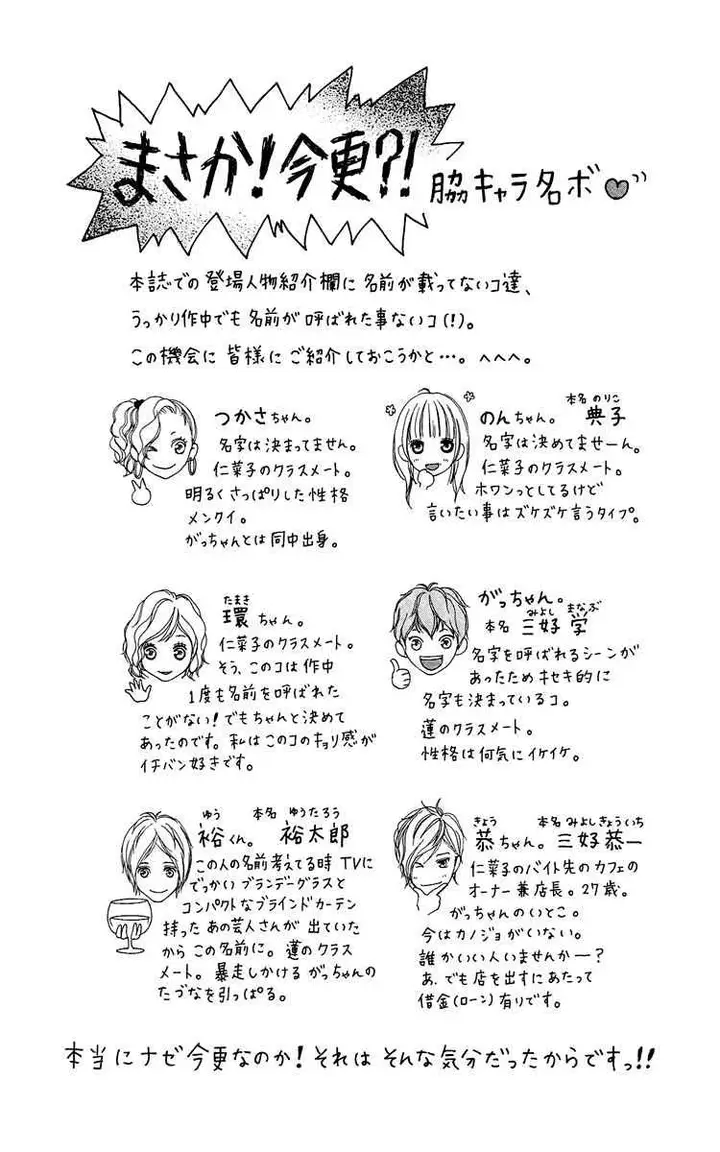 まさか!今更?!
脇キャラ名ボ♥
本誌での登場人物紹介欄に名前が載ってないコ達、
うっかり作中でも名前が呼ばれた事ないコ(!)。
この機会に皆様にご紹介しておこうかと…。へへへ。
つかさちゃん。
名字は決まってません。
仁菜子のクラスメート。
明るくさっぱりした性格
メンクイ。
がっちゃんとは同中出身。
のんちゃん。 本名 典子
のりこ
名字は決めてませーん。
仁菜子のクラスメート。
ホワンっとしてるけど
言いたい事はズケズケ言うタイプ。
たまき
環ちゃん。
仁菜子のクラスメート。
そう、このコは作中
1度も名前を呼ばれた
ことがない!でもちゃんと決めて
あったのです。私はこのコのキョリ感が
イチバン好きです。
がっちゃん。
みよし まなぶ
本名 三好 学
名字を呼ばれるシーンが
あったためキセキ的に
名字も決まっているコ。
蓮のクラスメート。
性格は何気にイケイケ。
ゆう 本名 ゆうたろう
裕くん。 裕太郎
この人の名前考えてる時TVに
でっかいブランデーグラスと
コンパクトなブラインドカーテン
持ったあの芸人さんが出ていた
からこの名前に。蓮のクラス
メート。暴走しかけるがっちゃんの
たづなを引っぱる。
きょう 本名 みよしきょういち
恭ちゃん。三好恭一
仁菜子のバイト先のカフェの
オーナー兼店長。27歳。
がっちゃんのいとこ。
今はカノジョがいない。
誰かいい人いませんかー?
あ、でも店を出すにあたって
借金(ローン)有りです。
本当にナゼ今更なのか!それはそんな気分だったからですっ!!